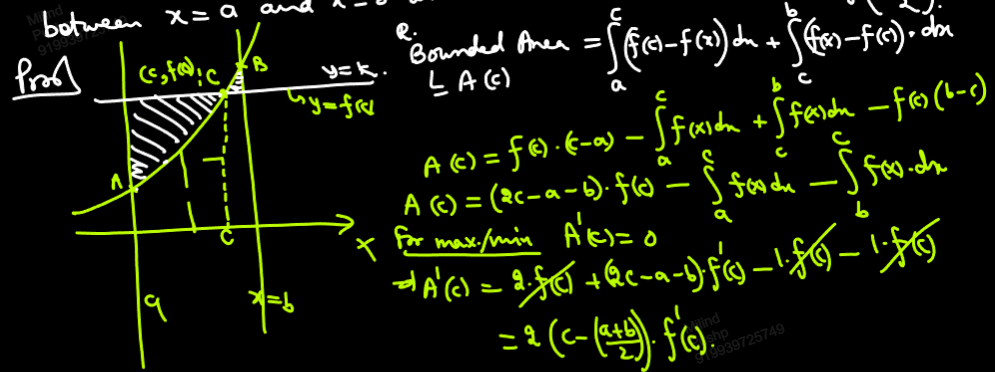 between x = a and
Proof
(c, f(c)) C
B
y = k
↳ y = f(c)
A
C
X
a
x = b
Bounded Area = ∫_a^c (f(c) - f(x)) dx + ∫_c^b (f(x) - f(c)) · dx
↳ A(c)
A(c) = f(c) · (c-a) - ∫_a^c f(x) dx + ∫_c^b f(x) dx - f(c) (b-c)
A(c) = (2c-a-b) · f(c) - ∫_a^c f(x) dx - ∫_b^c f(x) · dx
For max./min A'(c) = 0
⇒ A'(c) = 2·f(c) + (2c-a-b) · f'(c) - 1·f(c) - 1·f(c)
= 2 (c - (a+b)/2) · f'(c).
Milind
919939725749